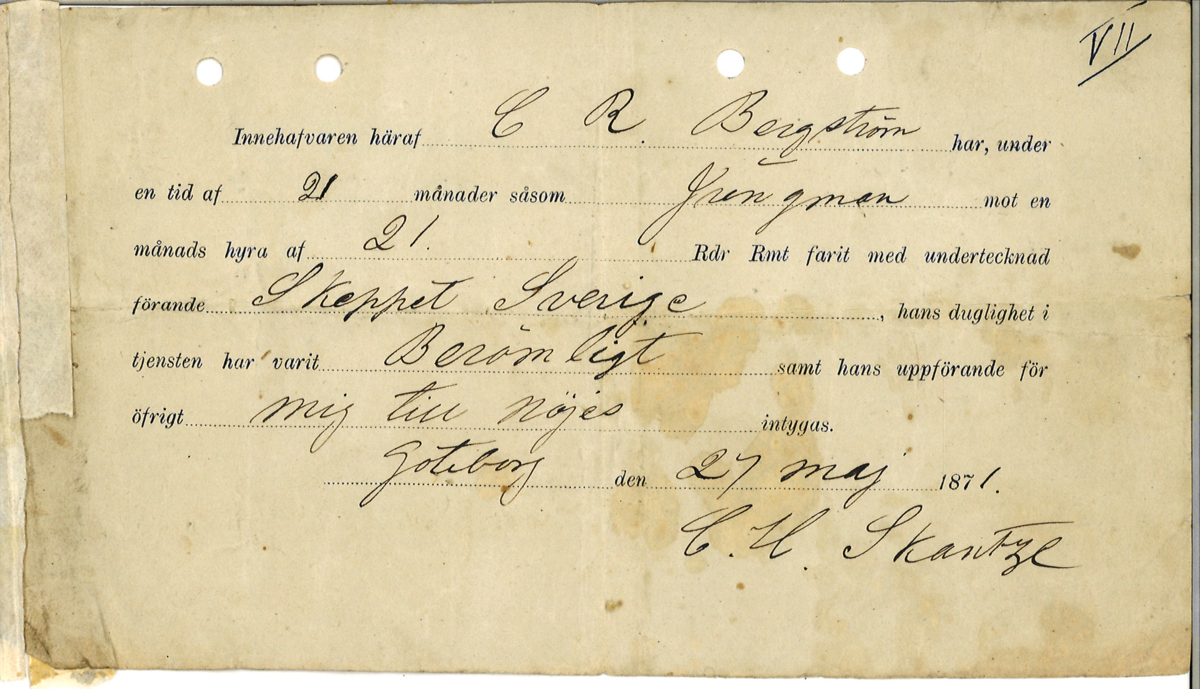 VII
Innehafvaren häraf C R. Bergström har, under
en tid af 21 månader såsom Jungman mot en
månads hyra af 21. Rdr Rmt farit med undertecknad
förande Skeppet Sverige, hans duglighet i
tjensten har varit Berömligt samt hans uppförande för
öfrigt mig till nöjes intygas.
Göteborg den 27 maj 1871.
C. H. Skantze